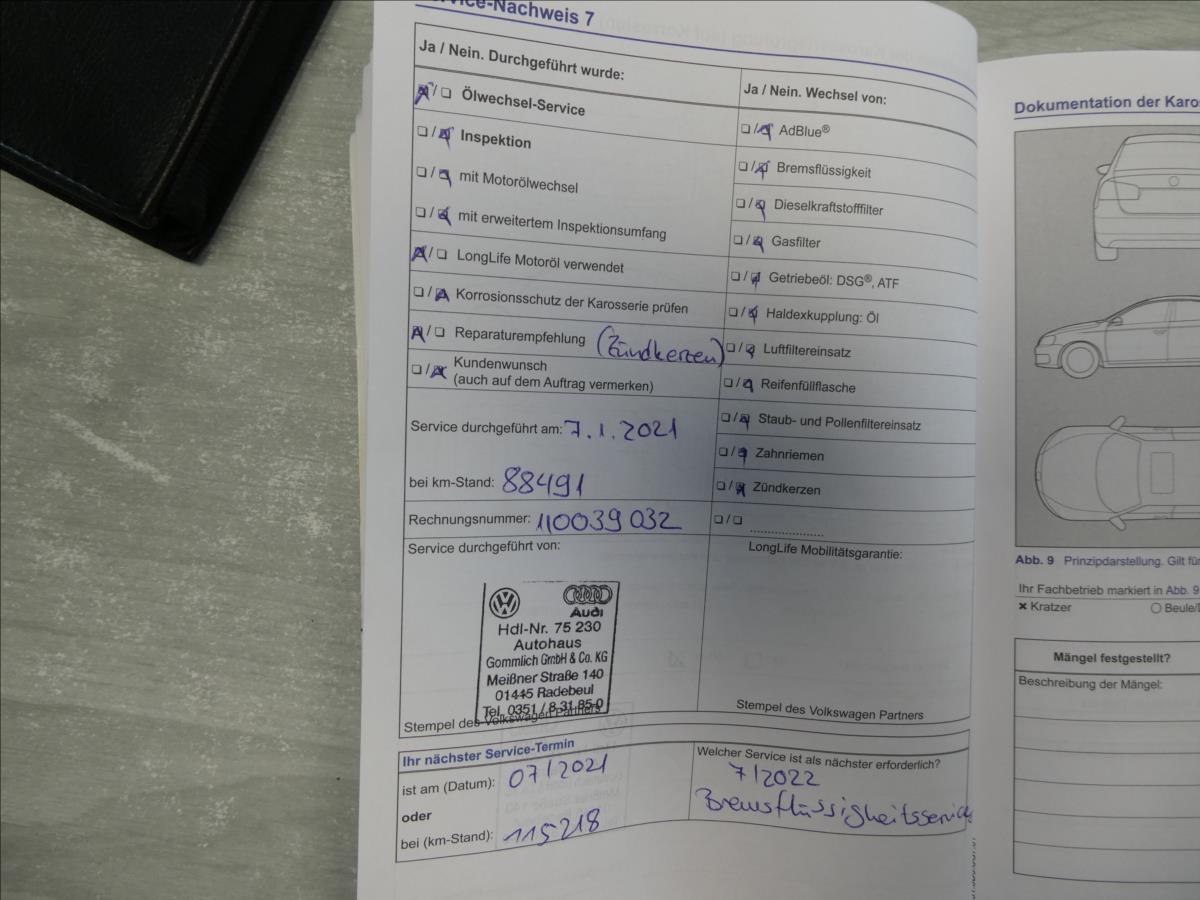 Service-Nachweis 7
Ja / Nein. Durchgeführt wurde:
☒/❏ Ölwechsel-Service
❏/☒ Inspektion
❏/☒ mit Motorölwechsel
❏/☒ mit erweitertem Inspektionsumfang
☒/❏ LongLife Motoröl verwendet
❏/☒ Korrosionsschutz der Karosserie prüfen
☒/❏ Reparaturempfehlung (Zündkerzen)
❏/☒ Kundenwunsch
(auch auf dem Auftrag vermerken)
Service durchgeführt am: 7.1.2021
bei km-Stand: 88491
Rechnungsnummer: 110039032
Service durchgeführt von:
Audi
Hdl-Nr. 75 230
Autohaus
Gommlich GmbH & Co. KG
Meißner Straße 140
01445 Radebeul
Tel. 0351 / 8 31 85-0
Stempel des Volkswagen Partners
Ja / Nein. Wechsel von:
❏/☒ AdBlue®
❏/☒ Bremsflüssigkeit
❏/☒ Dieselkraftstofffilter
❏/☒ Gasfilter
❏/☒ Getriebeöl: DSG®, ATF
❏/☒ Haldexkupplung: Öl
❏/☒ Luftfiltereinsatz
❏/☒ Reifenfüllflasche
❏/☒ Staub- und Pollenfiltereinsatz
❏/☒ Zahnriemen
❏/☒ Zündkerzen
❏/❏ ....................
LongLife Mobilitätsgarantie:
Stempel des Volkswagen Partners
Ihr nächster Service-Termin
ist am (Datum): 07/2021
oder
bei (km-Stand): 115218
Welcher Service ist als nächster erforderlich?
7/2022
Bremsflüssigkeitsservice
Dokumentation der Karos
Abb. 9 Prinzipdarstellung. Gilt fü
Ihr Fachbetrieb markiert in Abb. 9
✖ Kratzer ○ Beule/D
Mängel festgestellt?
Beschreibung der Mängel: